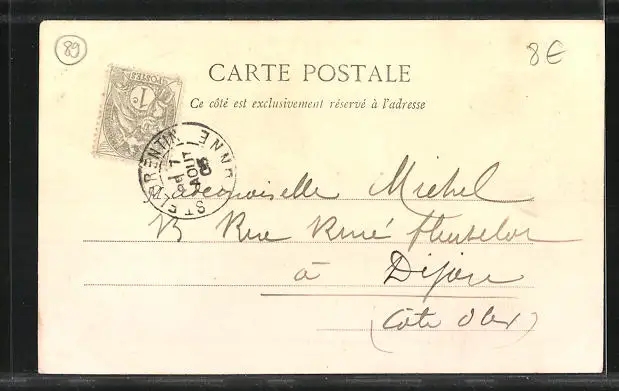 89
8€
CARTE POSTALE
Ce côté est exclusivement réservé à l'adresse
POSTES
1c
ST FLORENTIN YONNE
7
AOUT
05
Mademoiselle Michel
13 Rue René Fleutelot
à Dijon
(Côte d'Or)